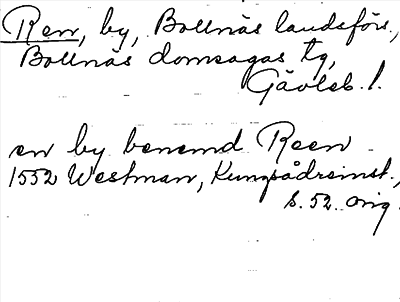 Ren, by, Bollnäs landsförs.,
Bollnäs domsagas tg,
Gävleb. l.
en by benemd Reen
1552 Westman, Kungsådreinst.,
s. 52. orig.